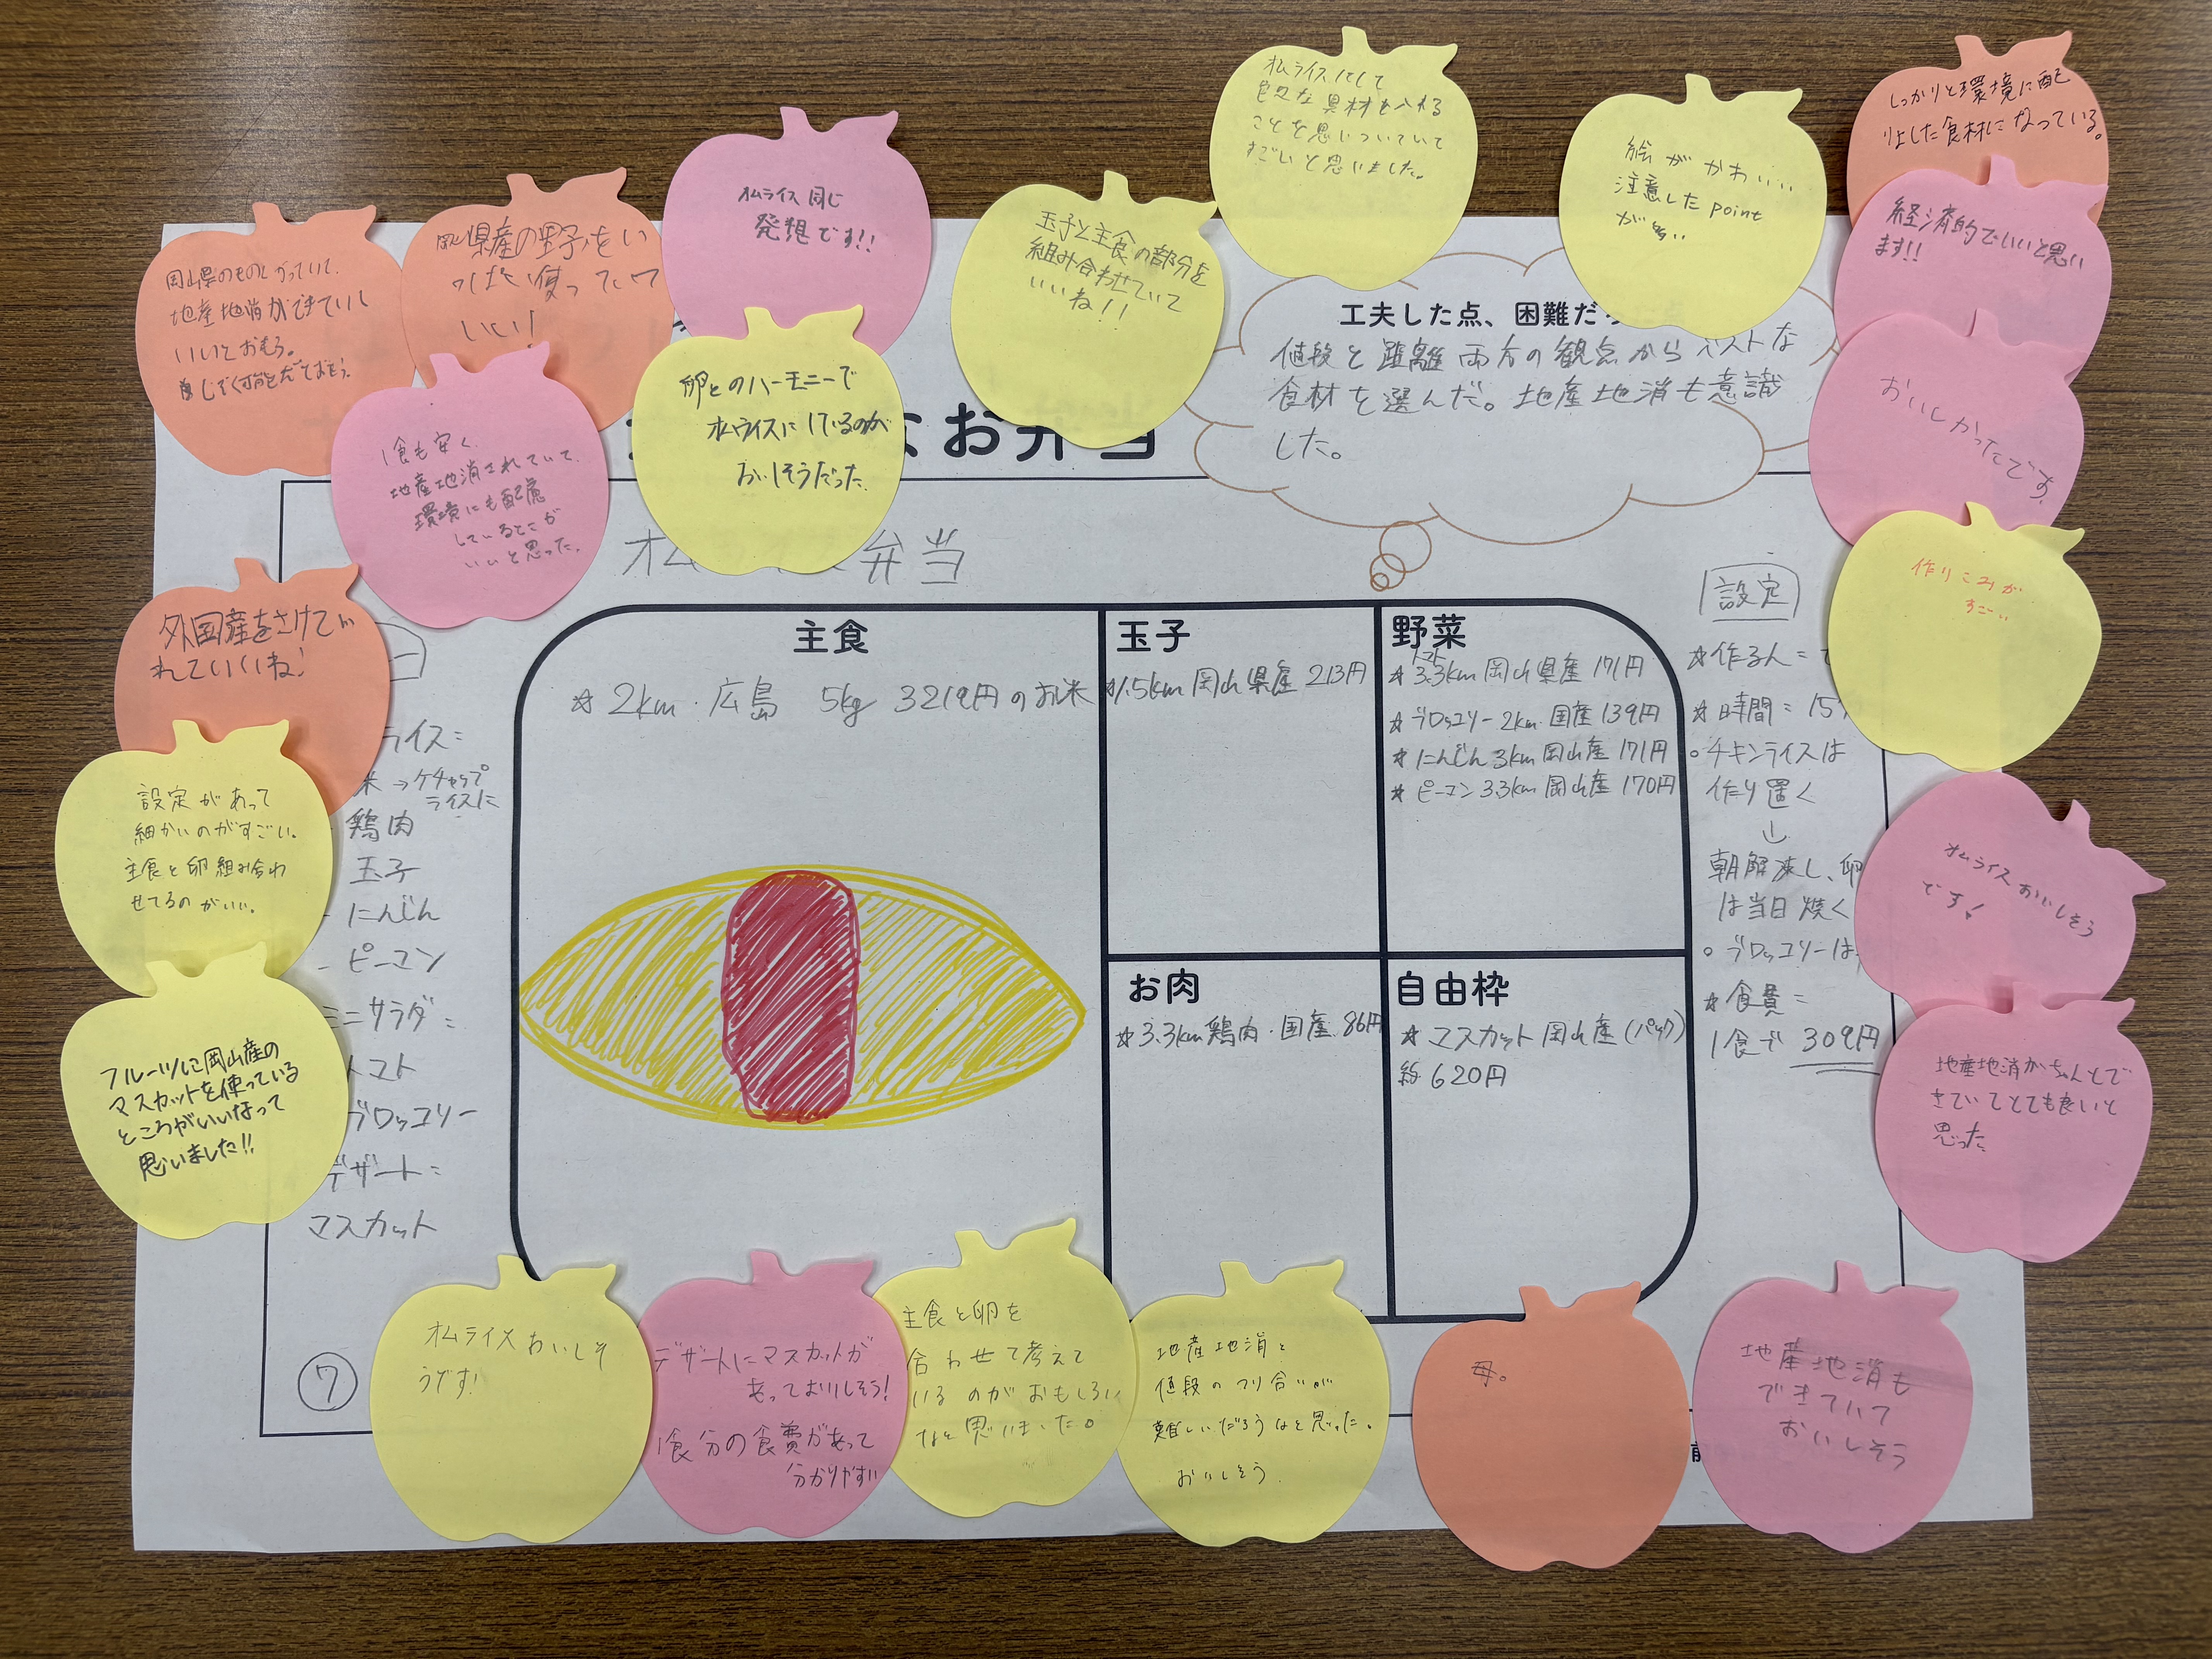 岡山県のものしがっていて、
地産地消ができていし
いいとおもう。
県産の野子をい
っぱい使ってたワ
いい!
オムライス同じ
発想です!!
玉子と主食の部分を
組み合わせていて
いいね!!
オムライスにして
色々な具材を入れる
ことを思いついていて
すごいと思いました。
絵がかわいい
注意したpoint
が多い
しっかりと環境に配
りょした食材になっている。
経済的でいいと思い
ます!!
おいしかったです。
作りこみが
すごーい
1食も安く、
地産地消されていて、
環境にも配慮
しているとこが
いいと思った。
卵とのハーモニーで
オムライスにしているのが
おいしそうだった
工夫した点、困難だ
値段と距離両方の観点からベストな
食材を選んだ。地産地消も意識
した。
なお弁当
オム
弁当
外国産をさけてい
れていいね!
設定があって
細かいのがすごい。
主食と卵組み合わ
せてるのがいい。
フルーツに岡山産の
マスカットを使っている
ところがいいなって
思いました!!
ライス=
米→ケチャップ
ライスに
鶏肉
玉子
にんじん
ピーマン
ミニサラダ=
トマト
ブロッコリー
デザート=
マスカット
主食
☆2km・広島 5kg 3219円のお米
玉子
☆1.5km岡山県産 213円
野菜
トマト
☆3.3km岡山県産 171円
☆ブロッコリー2km・国産139円
☆にんじん3km岡山産171円
☆ピーマン3.3km岡山産170円
お肉
☆3.3km鶏肉・国産 86円
自由枠
☆マスカット岡山産(パック)
約620円
設定
☆作る人=
☆時間=15
○チキンライスは
作り置く
↓
朝解凍し、卵
は当日焼く
○ブロッコリーは
☆食費=
1食で 309円
オムライスおいしそう
です!
地産地消がちゃんとで
きていてとても良いと
思った
⑦
オムライスおいしそ
うです!
デザートにマスカットが
あっておいしそう!
1食分の食費があって
分かりやすい
主食と卵を
合わせて考えて
いるのがおもしろい
なと思いました。
地産地消と
値段のつり合いが
難しいだろうなと思った。
おいしそう
母。
地産地消も
できていて
おいしそう